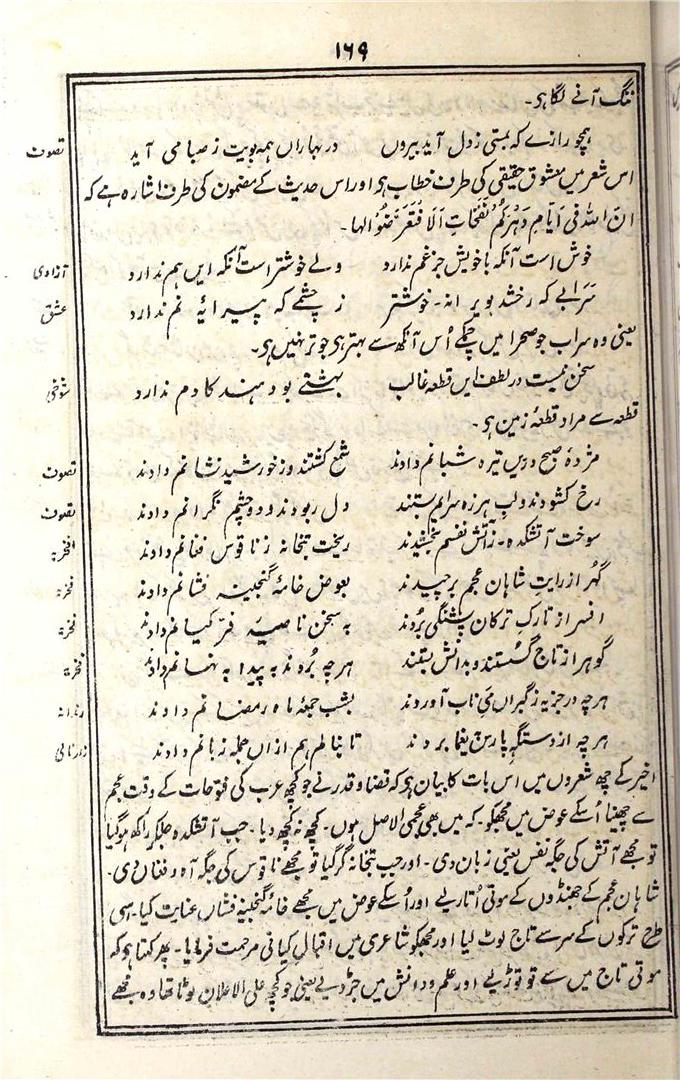 ۱۶۹
تنگ آنے لگا ہی۔
ہمچو رازے کہ بمستی ز دل آید بیروں در بہاراں ہمہ بویت ز صبا می آید تصوف
اس شعر میں معشوق حقیقی کی طرف خطاب ہی اور اس حدیث کے مضمون کی طرف اشارہ ہے کہ
انَ اللہ فی اَیَامِ دَہْرِکُم نَفَحَاتٍ اَلَا فَتَعَرَّضُوا لہا۔
خوش است آنکہ با خویش جز غم ندارد ولے خوشتر است آنکہ ایں ہم ندارد آزادی
سَرابے کہ رخشد بویرانہ۔ خوشتر ز چشمے کہ پیرایۂ نم ندارد عشق
یعنی وہ سراب جو صحرا میں چمکے اُس آنکھ سے بہتر ہی جو تر نہیں ہی۔
سخن نیست در لطف ایں قطعہ غالب بہشتے بود ہند کادم ندارد شوخی
قطعہ سے مراد قطعۂ زمین ہی
مژدۂ صبح دریں تیرہ شبانم دادند شمع کشتند و ز خورشید نشانم دادند تصوف
رخ کشودند و لبِ ہرزہ سرایم بستند دل ربودند و دو چشم نگرانم دادند تصوف
سوخت آتشکدہ۔ ز آتش نفسم بخشیدند ریخت بتخانہ ز ناقوس فغانم دادند فخریہ
گہر از رایتِ شاہانِ عجم برچیدند بعوض خامۂ گنجینہ فشانم دادند فخریہ
افسر از تارکِ ترکان پشنگی بُردند بہ سخن ناصیۂ فرّ کیانم دادند فخریہ
گوہر از تاج گسستند و بدانش بستند ہرچہ بُردند بہ پیدا بہ نہانم دادند فخریہ
ہرچہ در جزیہ ز گبراں مَیِ ناب آوردند بشب جمعۂ ماہ رمضانم دادند رندانہ
ہرچہ از دستگہِ پارس بیغما بردند تا بنالم ہم ازاں جملہ زبانم دادند زار نالی
اخیر کے چھ شعروں میں اس بات کا بیان ہی کہ قضا و قدر نے جو کچھ عرب کی فتوحات کے وقت عجم
سے چھینا اُسکے عوض میں مجھکو۔ کہ میں بھی عجمی الاصل ہوں۔ کچھ نہ کچھ دیا۔ جب آتشکدہ جلکر راکھ ہوگیا
تو مجھے آتش کی جگہ نفس یعنی زبان دی۔ اور جب بتخانہ گر گیا تو مجھے ناقوس کی جگہ آہ و فغاں دی۔
شاہانِ عجم کے جھنڈوں کے موتی اُتار لیے اور اُسکے عوض میں مجھے خامۂ گنجینہ فشاں عنایت کیا۔ اسی
طرح ترکوں کے سر سے تاج لوٹ لیا اور مجھکو شاعری میں اقبالِ کیانی مرحمت فرمایا۔ پھر کہتا ہی کہ
موتی تاج میں سے تو توڑ لیے اور علم و دانش میں جڑ دیے یعنی جو کچھ علی الاعلان لوٹا تھا وہ مجھے